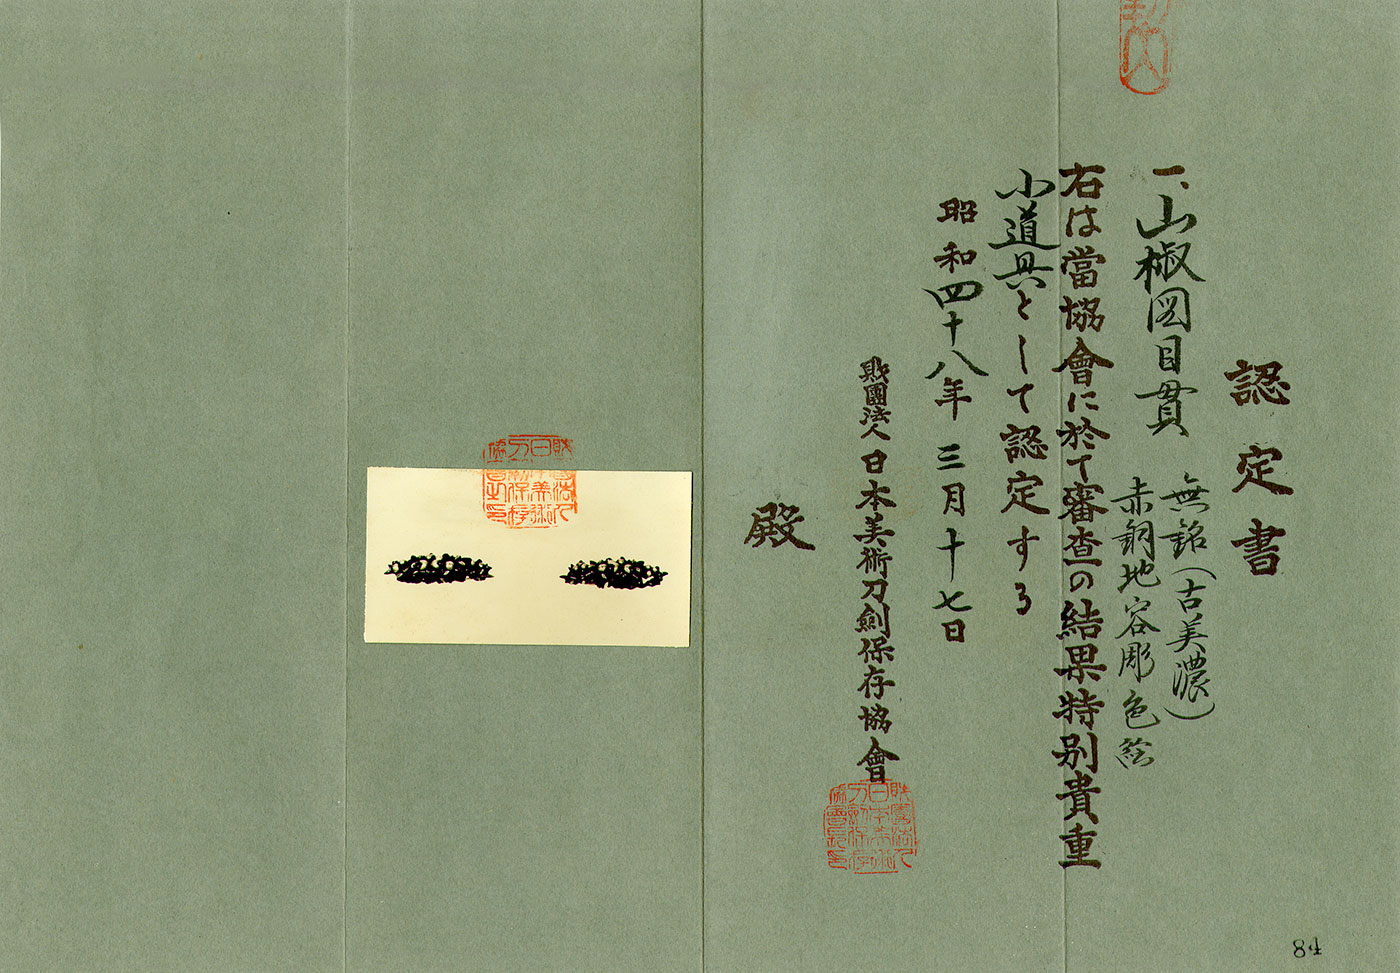 認定書
一、山椒図目貫
無銘(古美濃)
赤銅地容彫色絵
右は當協會に於て審査の結果特別貴重
小道具として認定する
昭和四十八年三月十七日
財團法人日本美術刀劍保存協會
殿
84